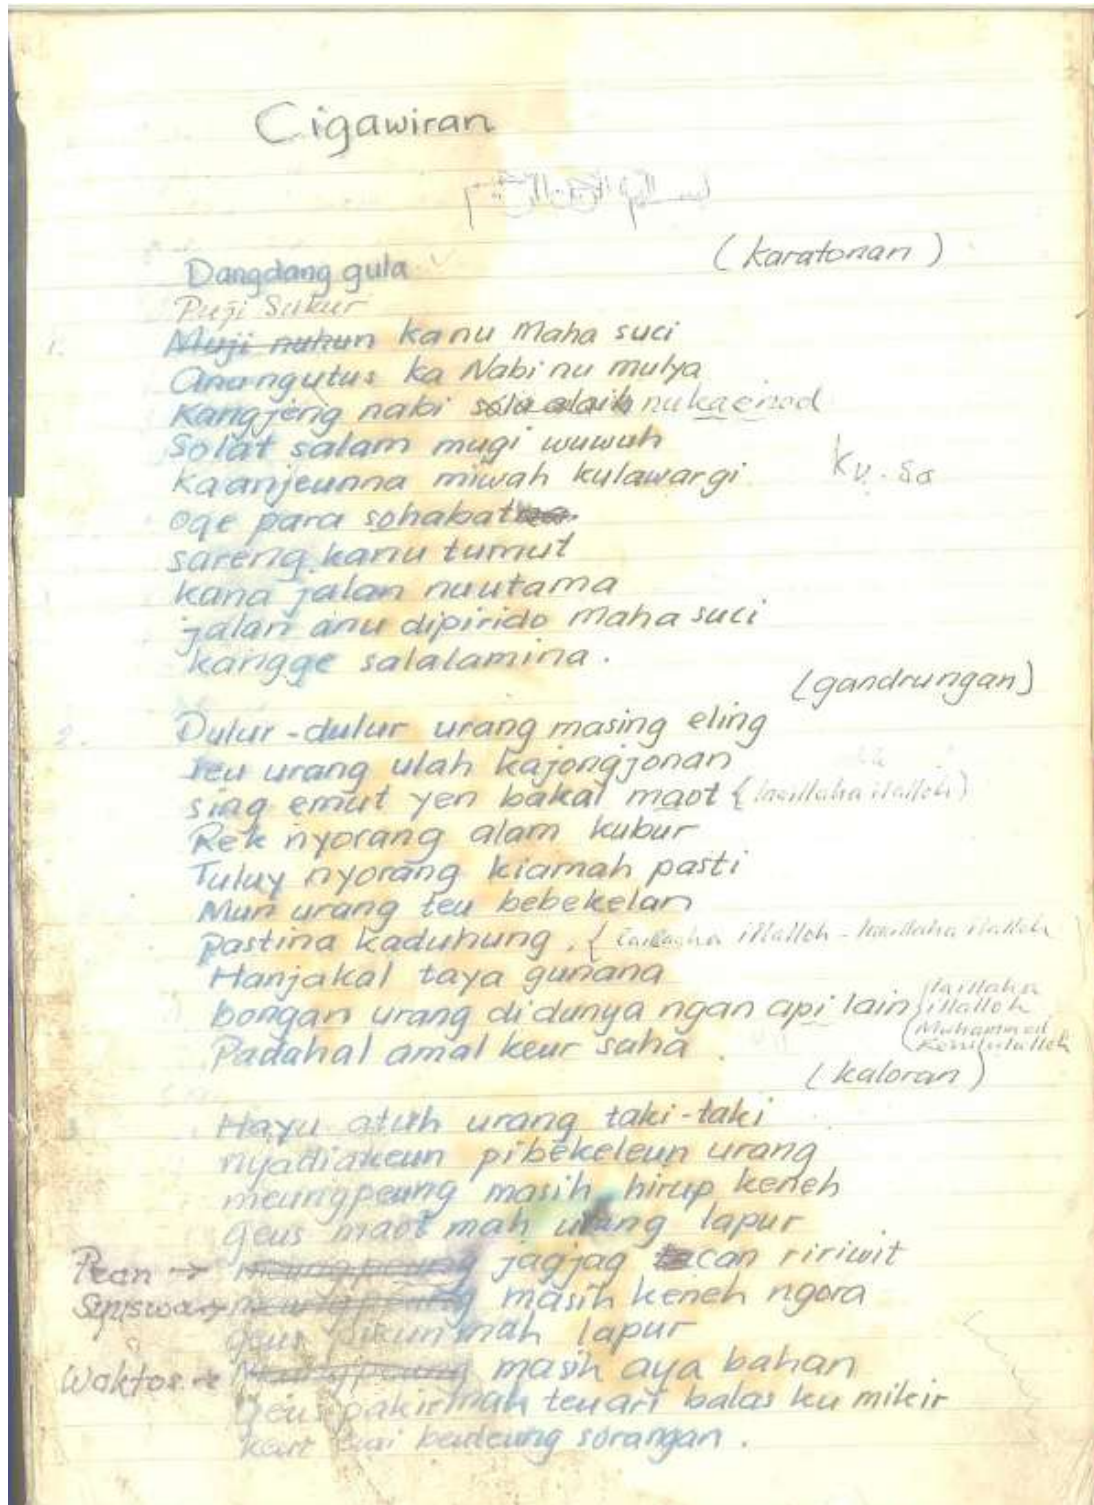 Cigawiran
بسم الله الرحمن الرحيم
(Karatonan)
Dangdang gula
Puji Sukur
1. Muji nuhun kanu Maha suci
Anu ngutus ka Nabi nu mulya
Kangjeng nabi sola alaih nu kaenod
Solat salam mugi wuwuh
Kaanjeunna miwah kulawargi
Ku. Sa
Oge para sohabatna
sareng kanu tumut
kana jalan nu utama
jalan anu dipirido Maha suci
kangge salalamina.
(gandrungan)
2. Dulur-dulur urang masing eling
Teu urang ulah kajongjonan
sing emut yen bakal maot { laaillaha illalloh )
Rek nyorang alam kubur
Tuluy nyorang kiamah pasti
Mun urang teu bebekelan
pastina kaduhung. { laaillaha illalloh - laaillaha illalloh
Hanjakal taya gunana
bongan urang didunya ngan api lain { laillaha
illalloh
Muhammad
Rosulullloh
Padahal amal keur saha.
(kaloran)
3. Hayu atuh urang taki-taki
nyadiakeun pibekeleun urang
meungpeung masih hirup keneh
geus maot mah urang lapur
Pean → meungpeung jagjag tacan ririwit
meungpeung masih keneh ngora
geus pikun mah lapur
Waktos → Meungpeung masih aya bahan
geus pakir mah teu ari balas ku mikir
beudeung sorangan.